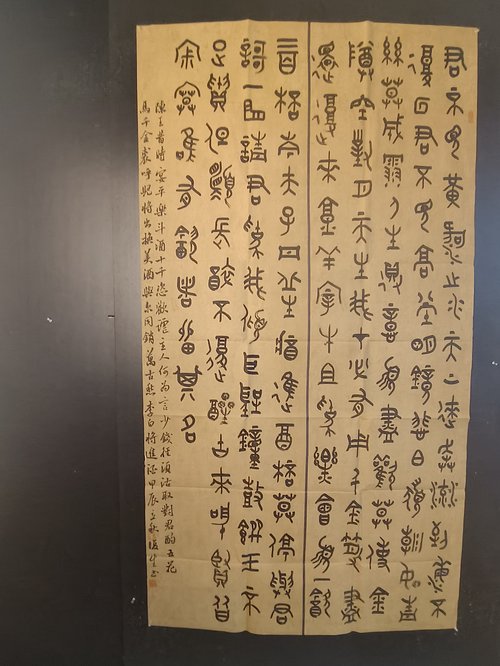 君不見黃河之水天上來奔流到海不
復回君不見高堂明鏡悲白髮朝如青
絲暮成雪人生得意須盡歡莫使金
樽空對月天生我才必有用千金散盡
還復來烹羊宰牛且為樂會須一飲
三百杯岑夫子丹丘生將進酒杯莫停與君
歌一曲請君為我傾耳聽鐘鼓饌玉不
足貴但願長醉不復醒古來聖賢皆
寂寞唯有飲者留其名
陳王昔時宴平樂斗酒十千恣歡謔主人何為言少錢徑須沽取對君酌五花
馬千金裘呼兒將出換美酒與爾同銷萬古愁李白將進酒甲辰立秋